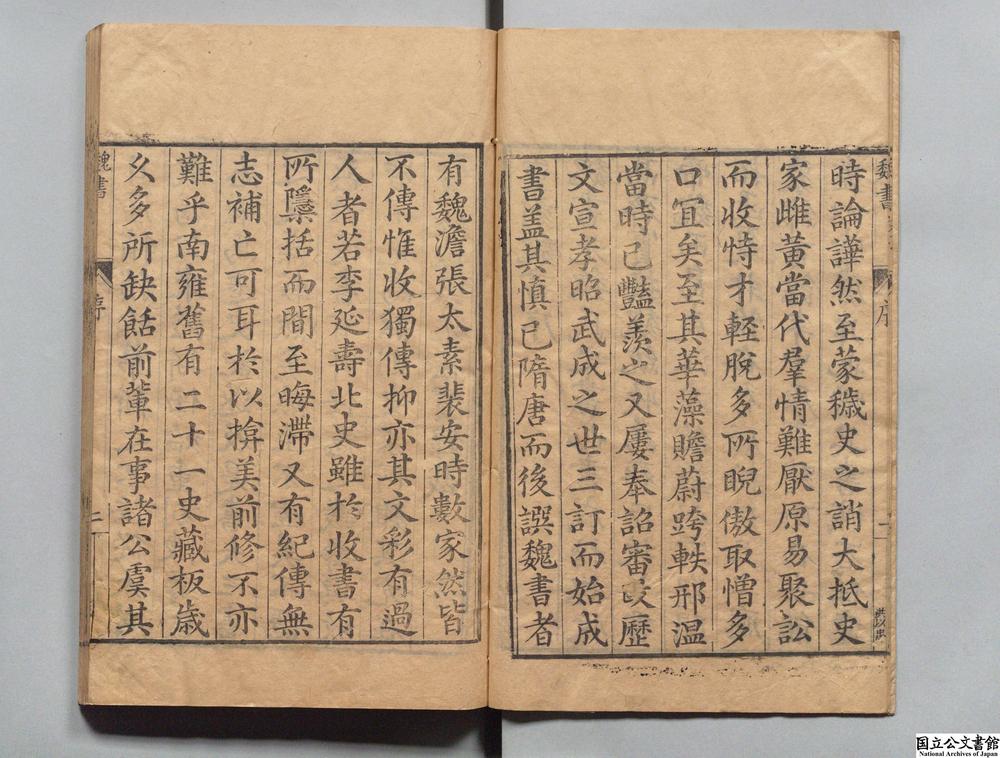 魏書
序
時論譁然至蒙穢史之誚大抵史
家雌黃當代羣情難厭原易聚訟
而收恃才輕脫多所睨傲取憎多
口宜矣至其華藻贍蔚跨軼邢溫
當時已豔羨之又屢奉詔審改歷
文宣孝昭武成之世三訂而始成
書盖其慎已隋唐而後譔魏書者
有魏澹張太素裴安時數家然皆
不傳惟收獨傳抑亦其文彩有過
人者若李延壽北史雖於收書有
所隱括而間至晦滯又有紀傳無
志補亡可耳於以揜美前修不亦
難乎南雍舊有二十一史藏板歲
久多所缺餂前輩在事諸公虞其
魏書
序
二
国立公文書館
National Archives of Japan